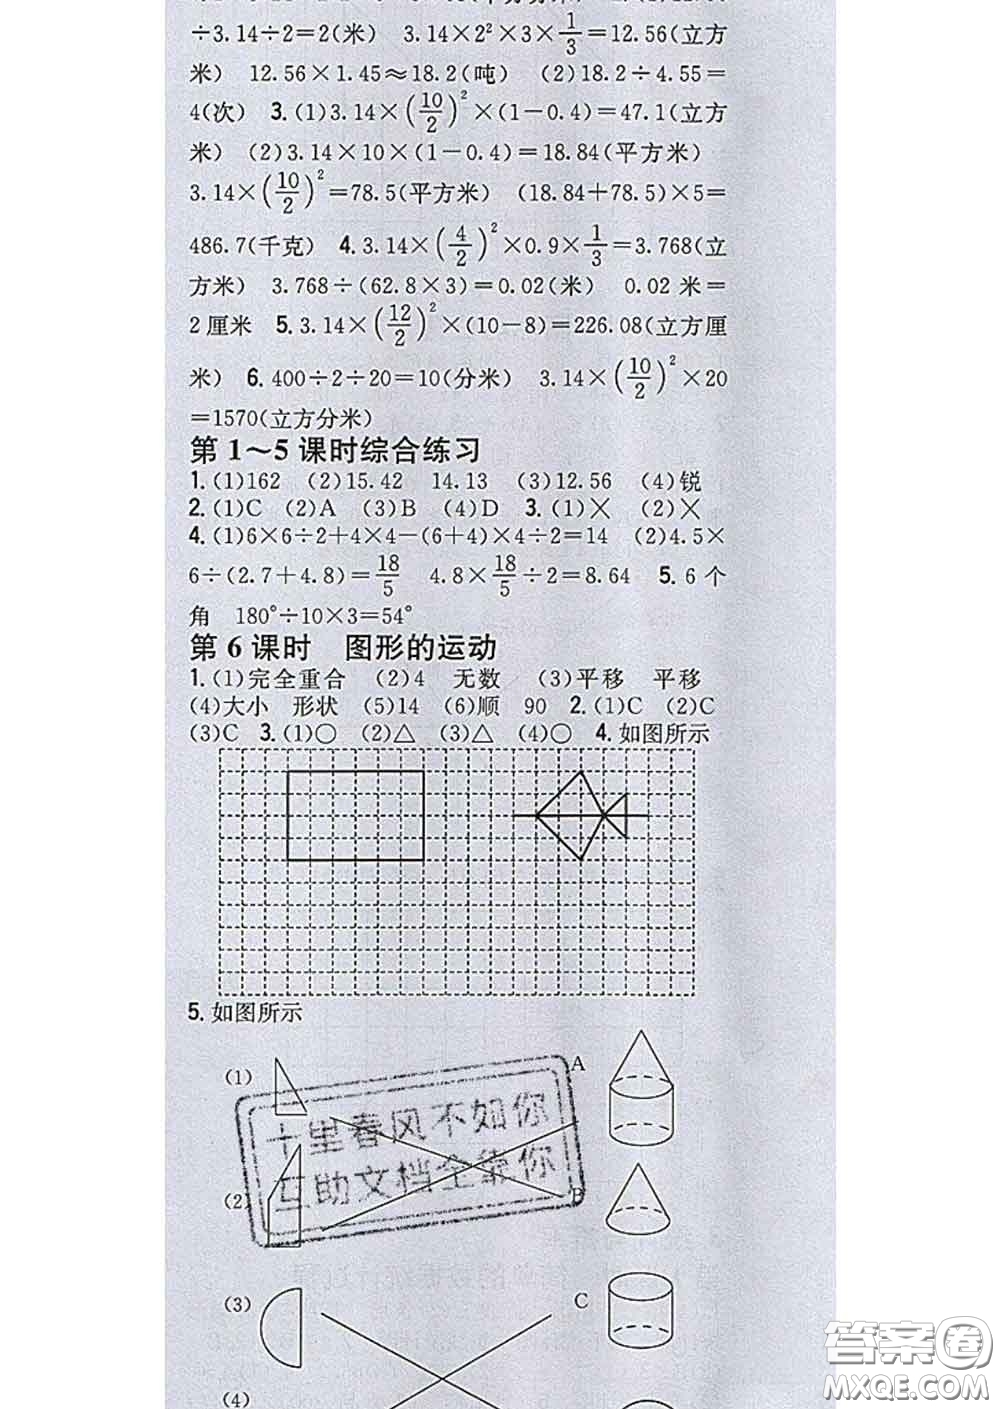 ÷3.14÷2=2(米) 3.14×2²×3×1/3=12.56(立方
米) 12.56×1.45≈18.2(吨) (2)18.2÷4.55=
4(次) 3.(1)3.14×(10/2)²×(1-0.4)=47.1(立方
米) (2)3.14×10×(1-0.4)=18.84(平方米)
3.14×(10/2)²=78.5(平方米) (18.84+78.5)×5=
486.7(千克) 4.3.14×(4/2)²×0.9×1/3=3.768(立
方米) 3.768÷(62.8×3)=0.02(米) 0.02米=
2厘米 5.3.14×(12/2)²×(10-8)=226.08(立方厘
米) 6.400÷2÷20=10(分米) 3.14×(10/2)²×20
=1570(立方分米)
第1~5课时综合练习
1.(1)162 (2)15.42 14.13 (3)12.56 (4)锐
2.(1)C (2)A (3)B (4)D 3.(1)× (2)×
4.(1)6×6÷2+4×4-(6+4)×4÷2=14 (2)4.5×
6÷(2.7+4.8)=18/5 4.8×18/5÷2=8.64 5.6个
角 180°÷10×3=54°
第6课时 图形的运动
1.(1)完全重合 (2)4 无数 (3)平移 平移
(4)大小 形状 (5)14 (6)顺 90 2.(1)C (2)C
(3)C 3.(1)○ (2)△ (3)△ (4)○ 4.如图所示
5.如图所示
(1)
A
十里春风不如你
互助文档全靠你
(2)
B
(3)
C
(4)
答案圈
MXQE.COM